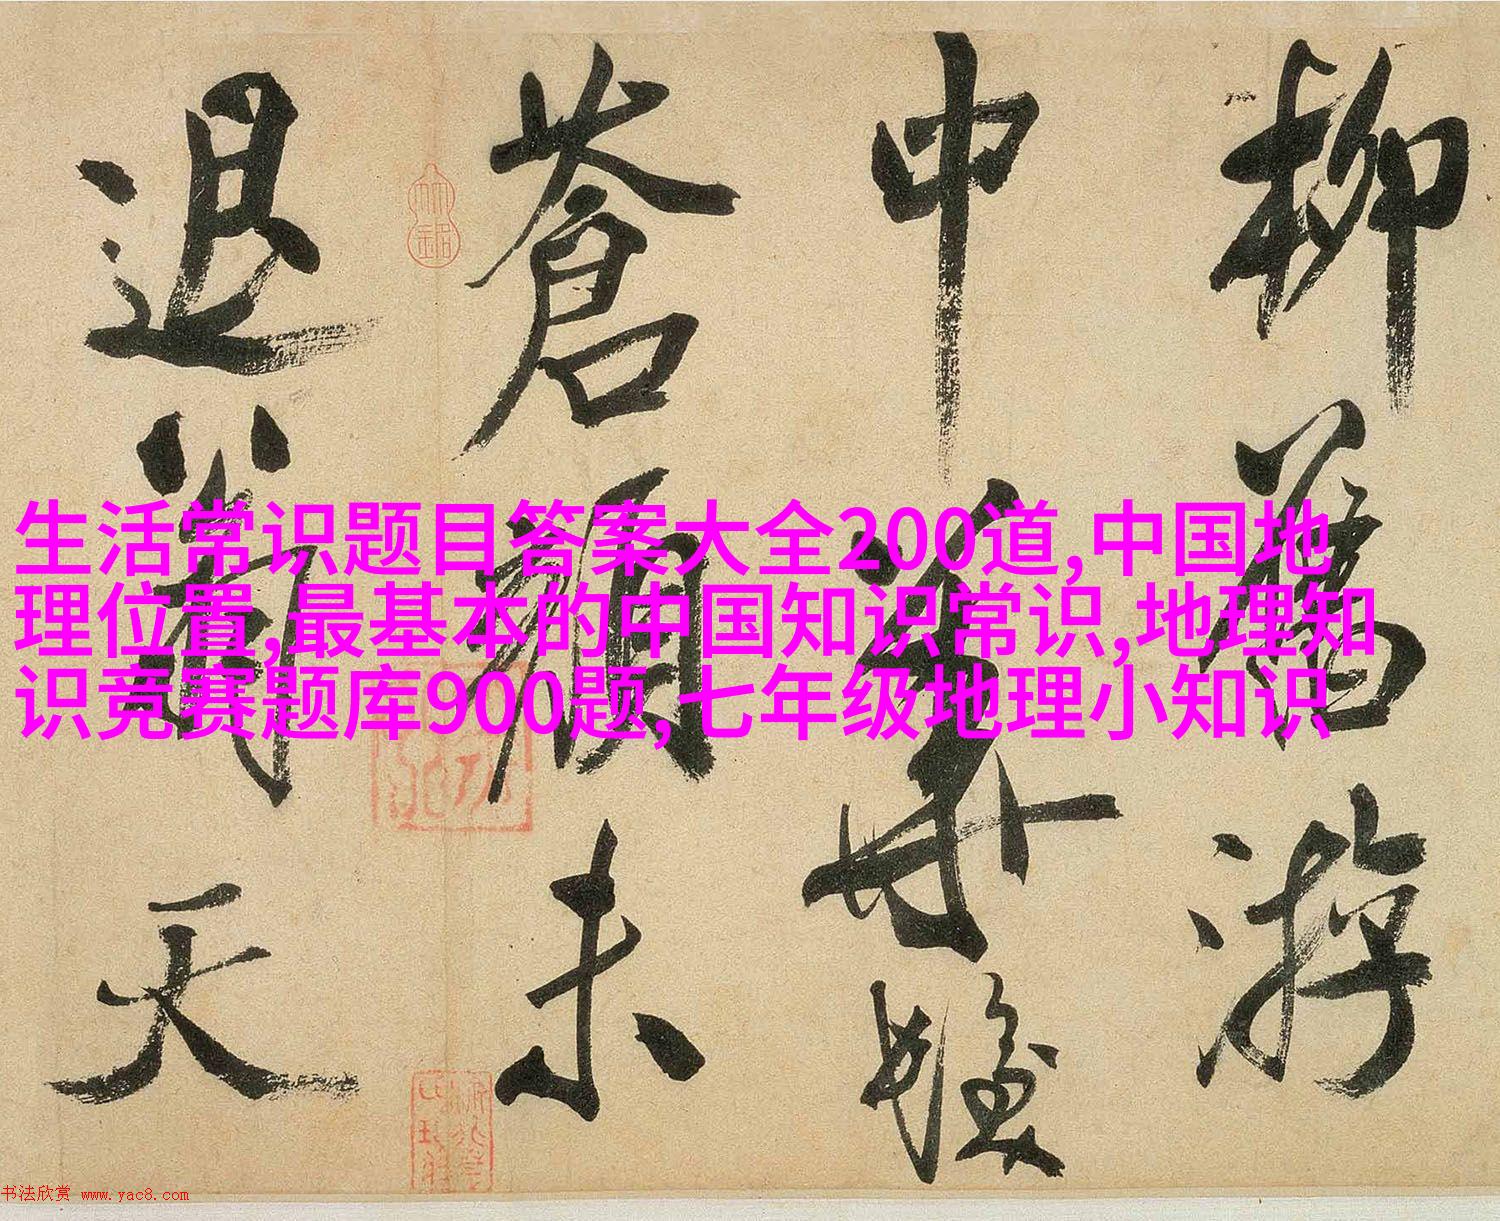 柳舊游
中華
蒼顏未
退天
生活常识题目答案大全200道,中国地
理位置,最基本的中国知识常识,地理知
识竞赛题库900题,七年级地理小知识
书法欣赏 www.yac8.com